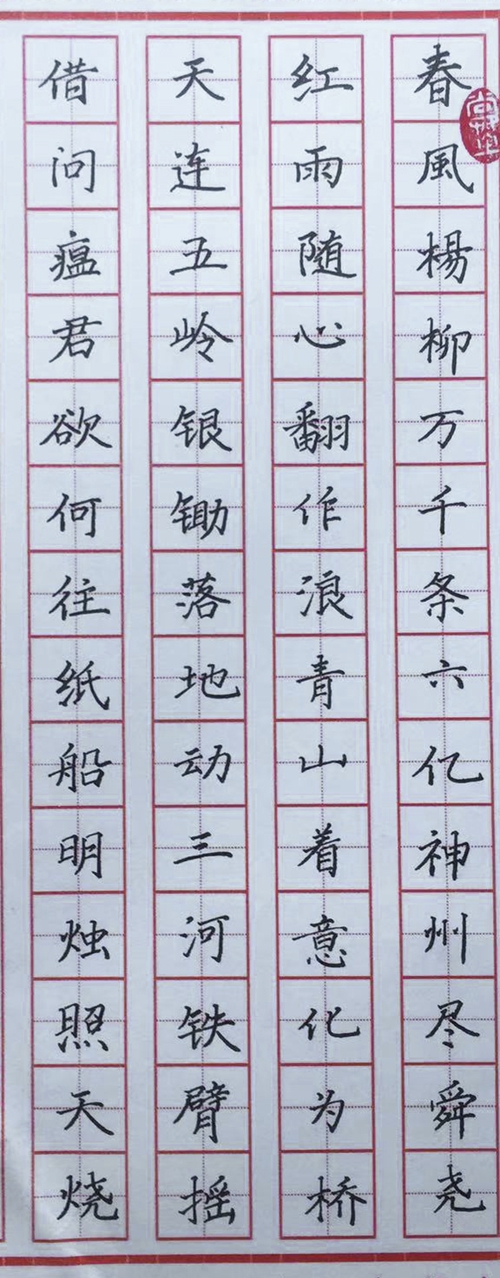 春風楊柳万千条六亿神州尽舜尧
红雨随心翻作浪青山着意化为桥
天连五岭银锄落地动三河铁臂摇
借问瘟君欲何往纸船明烛照天烧